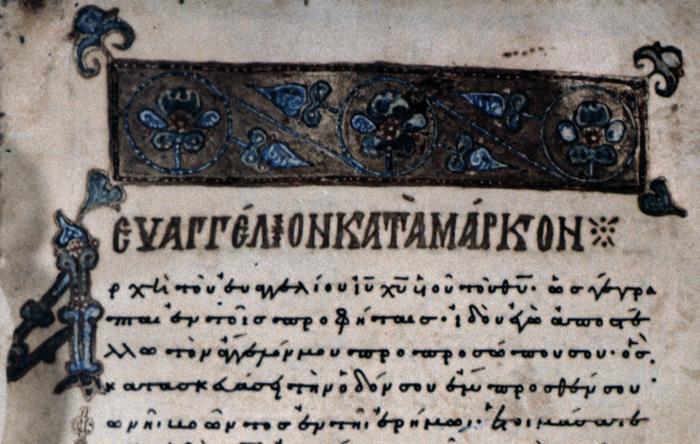 ΕΥΑΓΓΕΛΙΟΝ ΚΑΤΑ ΜΑΡΚΟΝ
Ἀρχὴ τοῦ εὐαγγελίου ιυ χυ υἱοῦ τοῦ θυ· ὡς γέγρα
πται ἐν τοῖς προφήταις· ἰδοὺ ἐγὼ ἀποστέ
λλω τὸν ἄγγελόν μου πρὸ προσώπου σου· ὃς
κατασκευάσει τὴν ὁδόν σου ἔμπροσθέν σου·
φωνὴ βοῶντος ἐν τῇ ἐρήμω· ἑτοιμάσατε